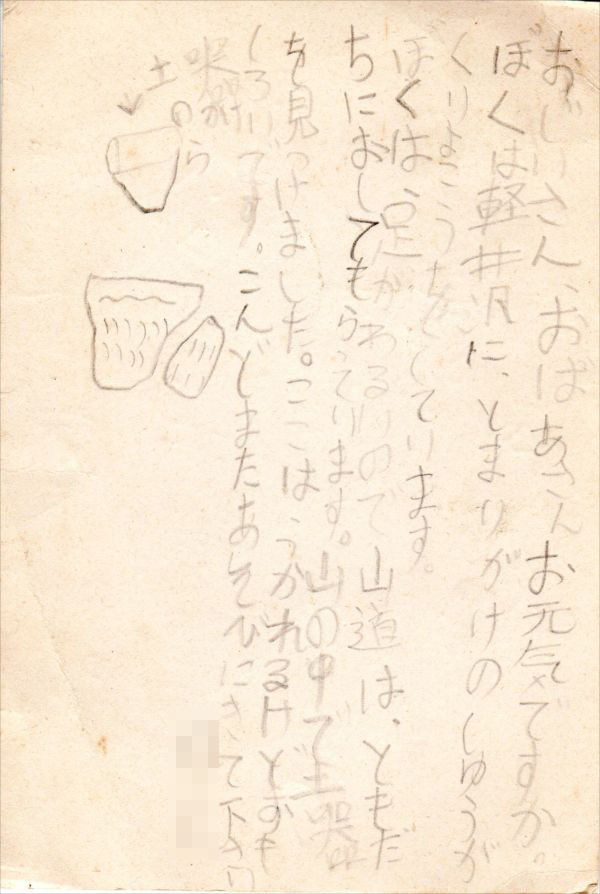 おじいさん、おばあさんお元気ですか。
ぼくは軽井沢に、とまりがけのしゅうが
くりょこうをしてります。
ぼくは、足がわるいので山道は、ともだ
ちにおしてもらってります。山の中で土器
を見つけました。ここはつかれるけどおも
しろいです。こんどまたあそびにきて下さい
土器の
かけら